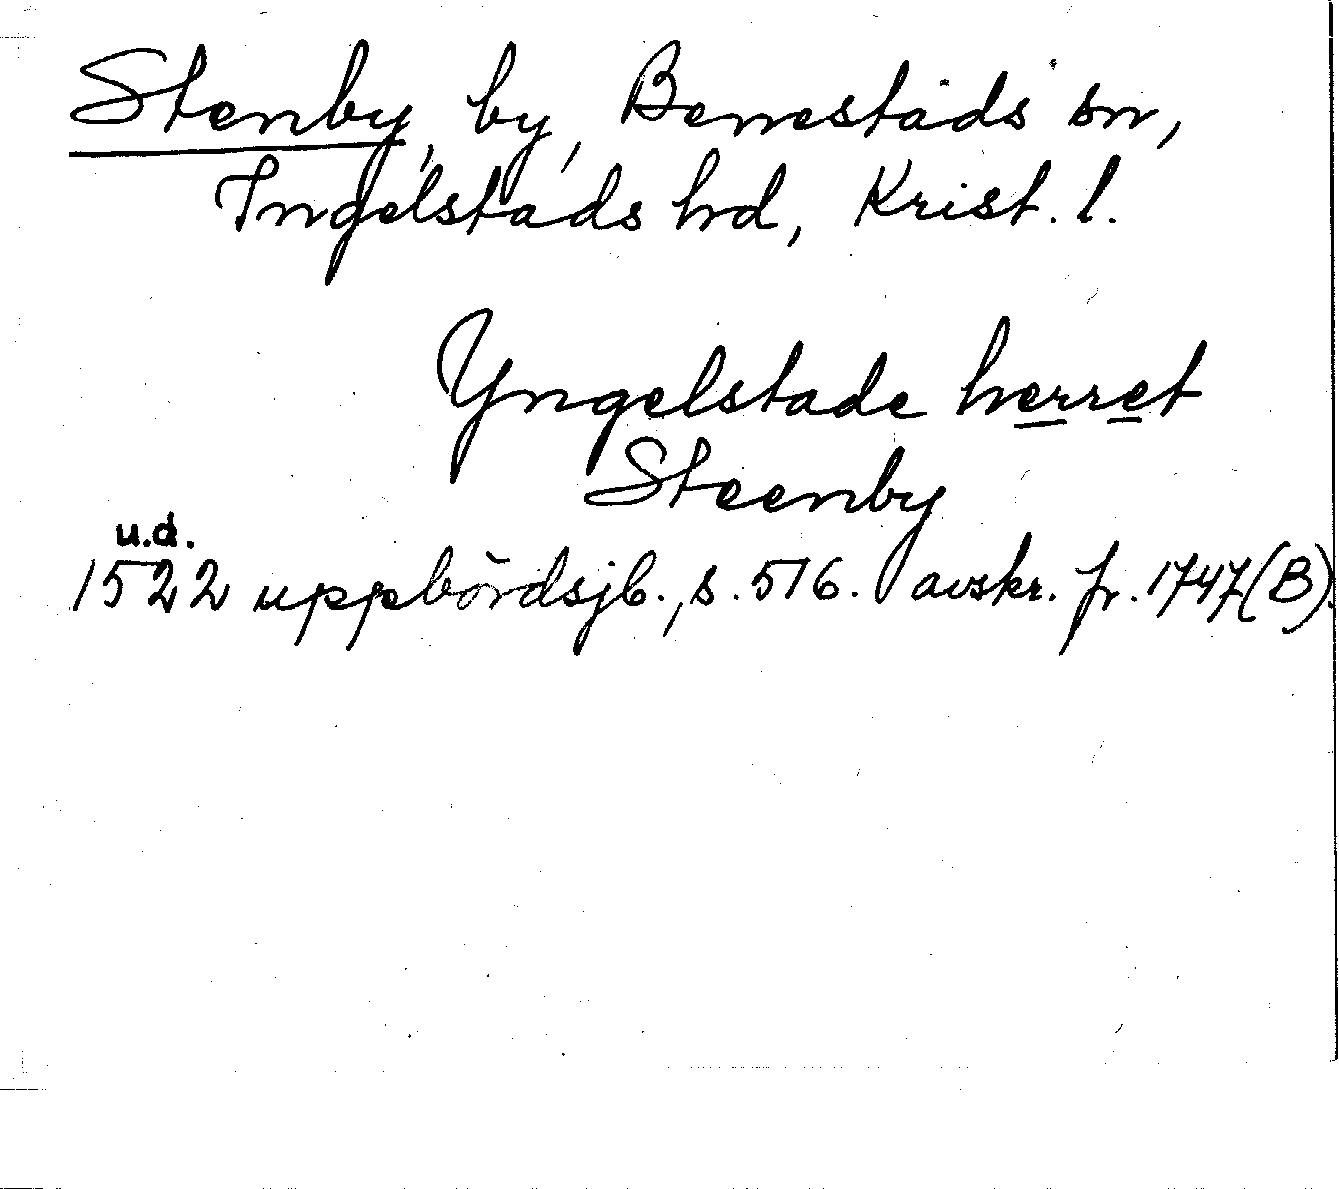 Stenby, by, Benestads sn,
Ingelstads hd, Krist. l.
Yngelstade herret
Steenby
u.d.
1522 uppbördsjb., s. 516. avskr. fr. 1747(B).